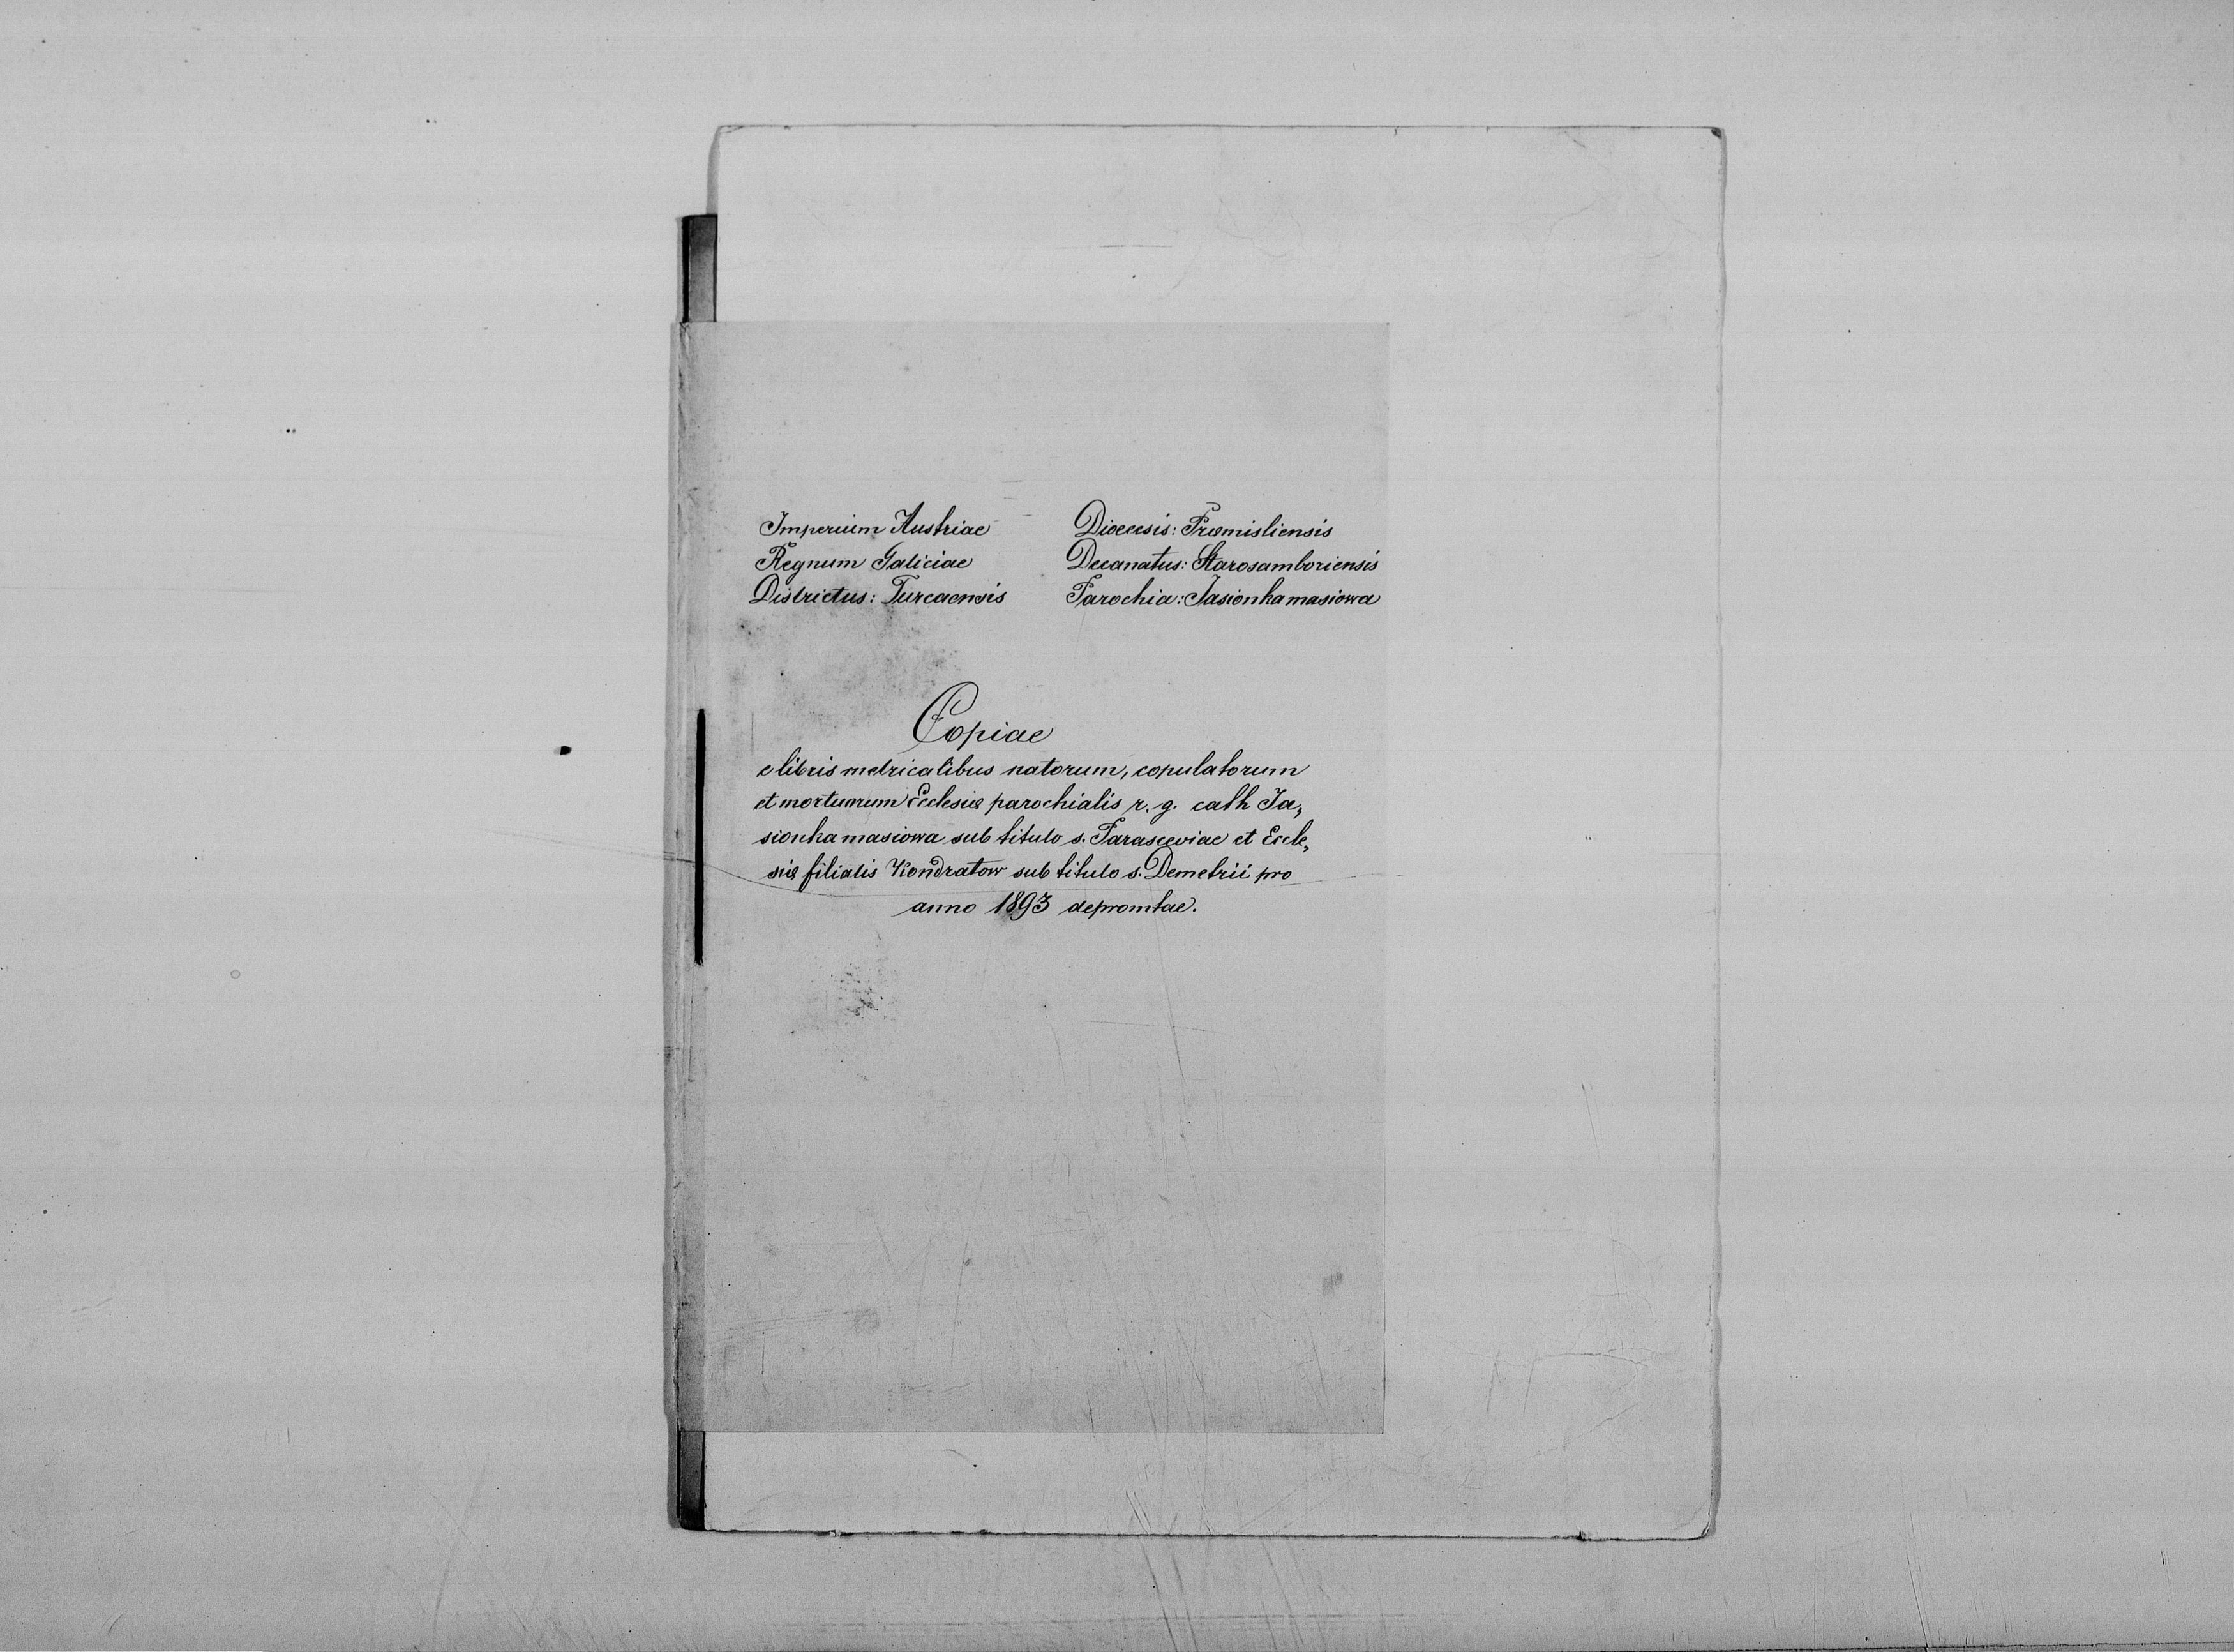 Imperium Austriae
Regnum Galiciae
Districtus: Turcaensis
Dioecesis: Premisliensis
Decanatus: Starosamboriensis
Parochia: Jasionkamasiowa
Copiae
e libris metricalibus natorum, copulatorum
et mortuorum Ecclesię parochialis r. g. cath Ja„
sionkamasiowa sub titulo s. Parasceviae et Eccle„
się filialis Kondratow sub titulo s. Demetrii pro
anno 1893 depromtae.